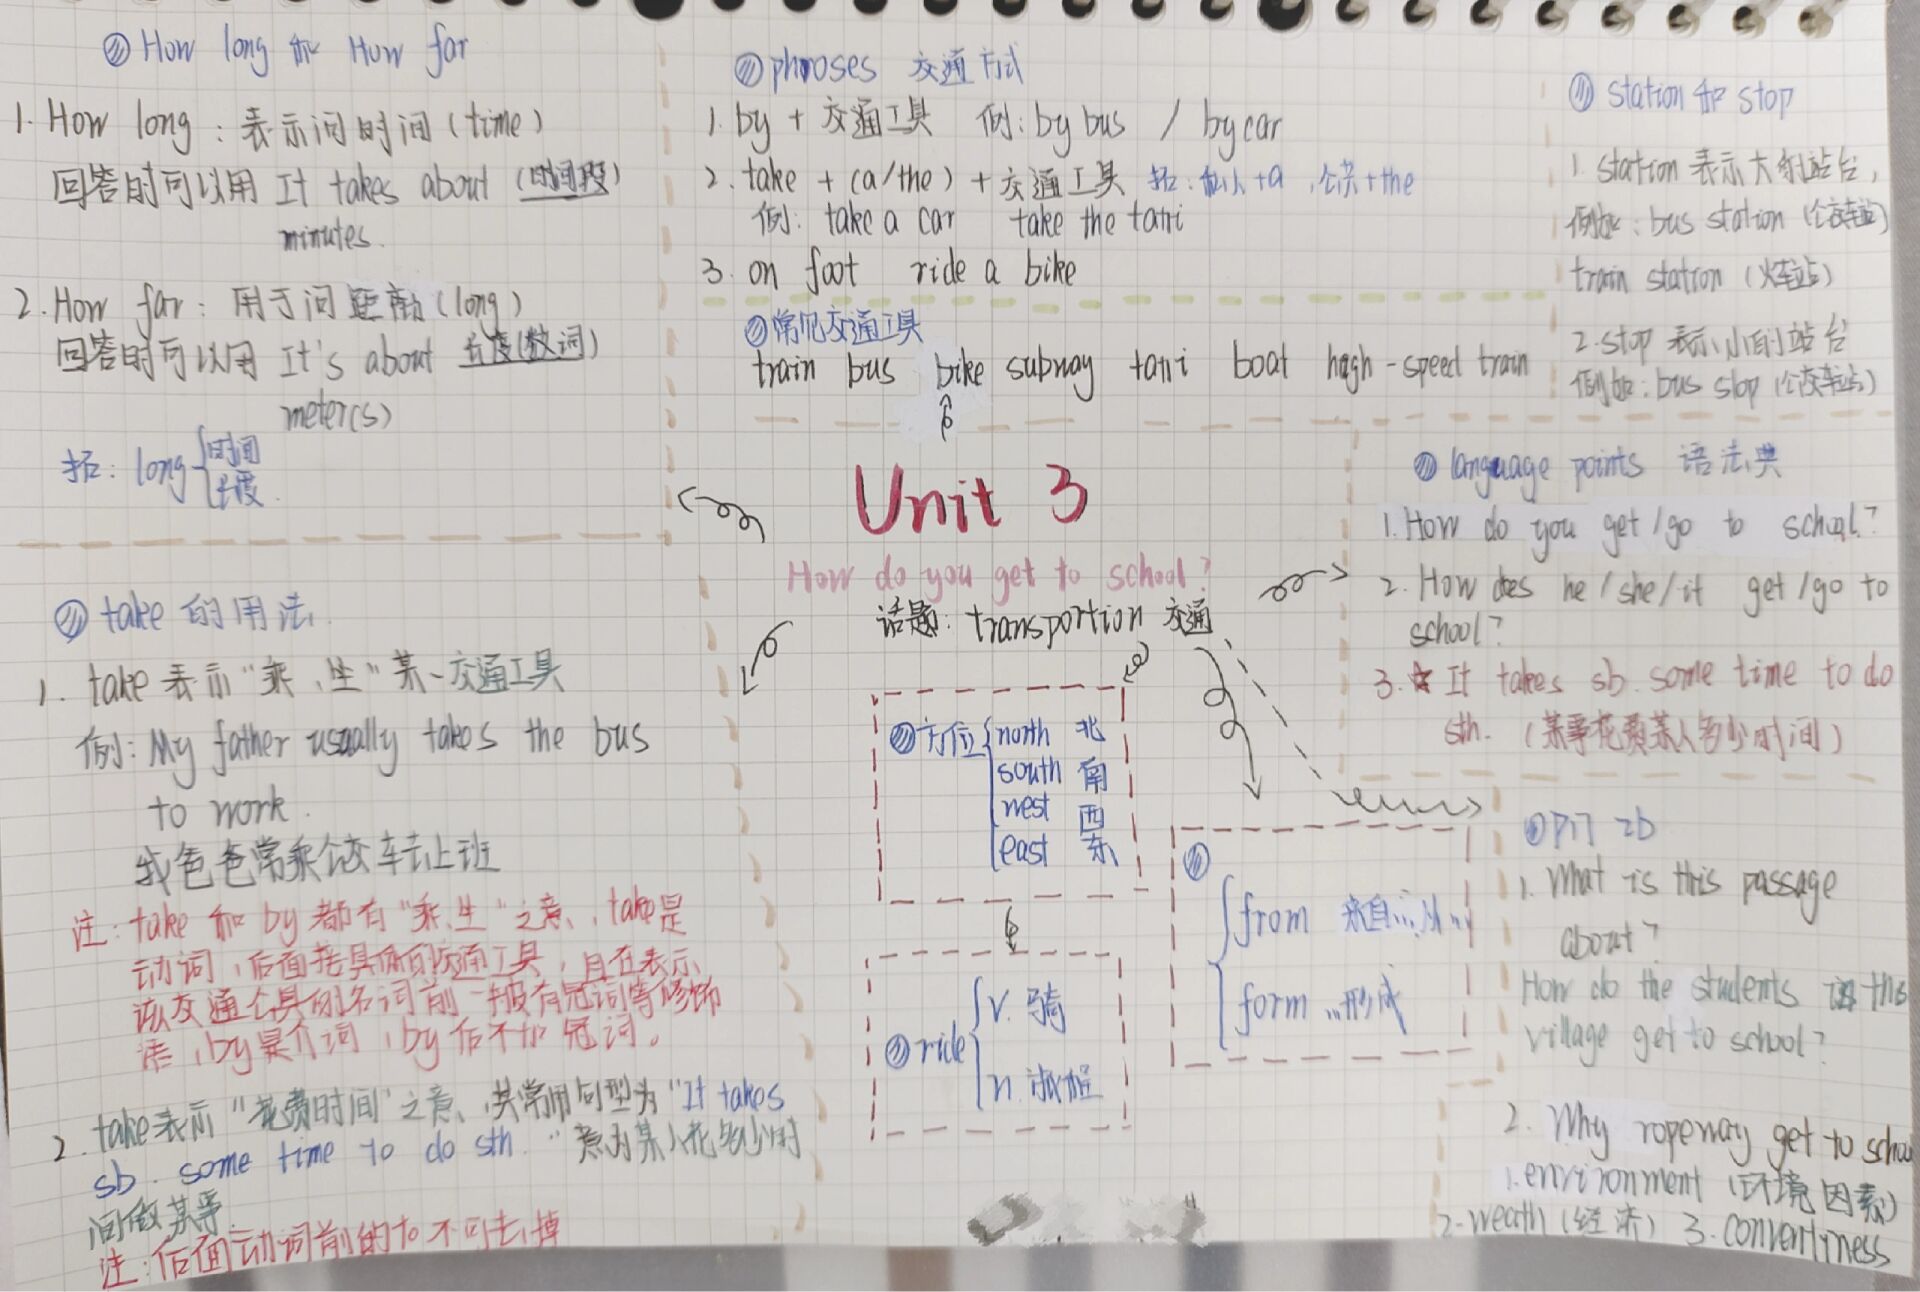 How long 和 How far
1. How long : 表示问时间 (time)
回答时可以用 It takes about (时间段)
minutes.
2. How far : 用于问距离 (long)
回答时可以用 It's about 长度(数词)
meter(s)
拓: long { 时间
长度.
phroses 交通方式
1. by + 交通工具 例: by bus / by car
2. take + (a/the) + 交通工具 拓: 私人+a , 公共+the
例: take a car take the taxi
3. on foot ride a bike
常见交通工具
train bus bike subway taxi boat hagh-speed train
station 和 stop
1. station 表示大的站台,
例如: bus station (公交车站)
train station (火车站)
2. stop 表示小的站台
例如: bus stop (公交车站)
Unit 3
How do you get to school?
话题: transportion 交通
language points 语法典
1. How do you get/go to school?
2. How does he/she/it get/go to
school?
3. ☆ It takes sb. some time to do
sth. (某事花费某人多少时间)
take 的用法.
1. take 表示“乘、坐”某一交通工具
例: My father usually takes the bus
to work.
我爸爸常乘公交车去上班
注: take 和 by 都有“乘、坐”之意, take是
动词, 后面接具体的交通工具, 且在表示
该交通工具的名词前一般有冠词等修饰
语, by是介词, by后不加冠词。
2. take表示“花费时间”之意, 其常用句型为“It takes
sb. some time to do sth.”意为某人花多少时
间做某事
注: 后面动词前的to不可去掉
方位 { north 北
south 南
west 西
east 东
ride { v. 骑
n. 旅程
{ from 来自… 从…
form … 形成
P17 2b
1. What is this passage
about?
How do the students in this
village get to school?
2. Why ropeway get to schoo
1. environment (环境因素)
2. weath (经济) 3. convertiness